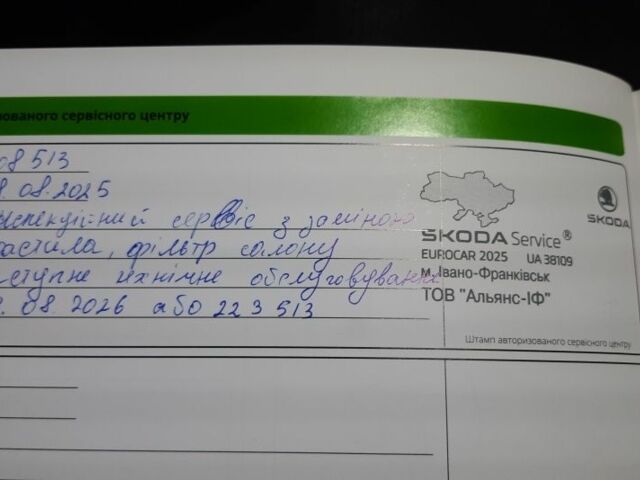 рованого сервісного центру
08 513
. 08.2025
нспекційний сервіс з заміною
мастила, фільтр салону
наступне технічне обслуговування
. 08. 2026 або 223 513
SKODA
ŠKODA Service®
EUROCAR 2025 UA 38109
м. Івано-Франківськ
ТОВ "Альянс-ІФ"
Штамп авторизованого сервісного центру